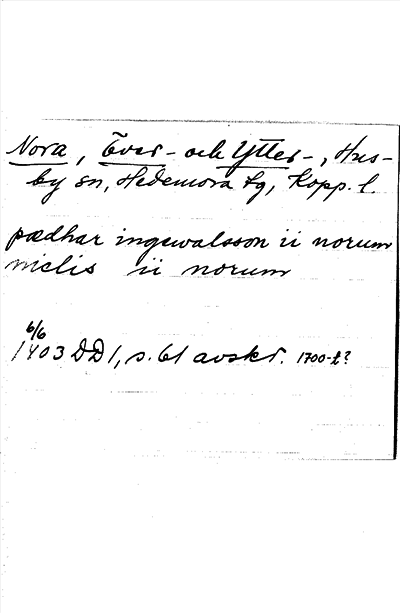 Nora, Över- och Ytter-, Hus-
by sn, Hedemora tg, Kopp. l.
pædhar ingewalsson ii norum
niclis ii norum
6/6
1403 DD 1, s. 61 avskr. 1700-t?